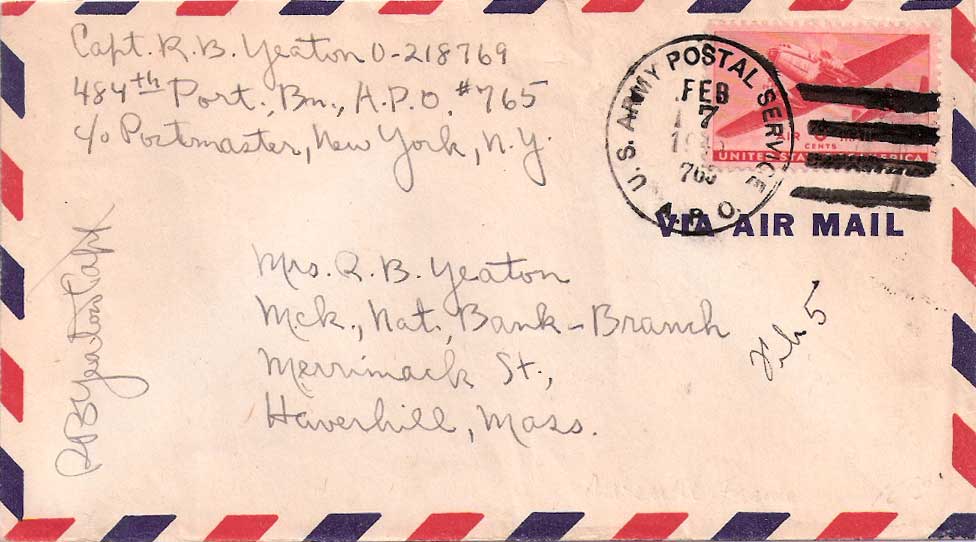 Capt. R. B. Yeaton O-218769
484th Port. Bn., A.P.O. #765
c/o Postmaster, New York, N.Y.
U.S. ARMY POSTAL SERVICE
FEB
7
A.P.O.
CENTS
UNITED STATES OF AMERICA
VIA AIR MAIL
Mrs. R. B. Yeaton
Mck. Nat. Bank-Branch
Merrimack St.,
Haverhill, Mass.
RB Yeaton Capt
Feb 5